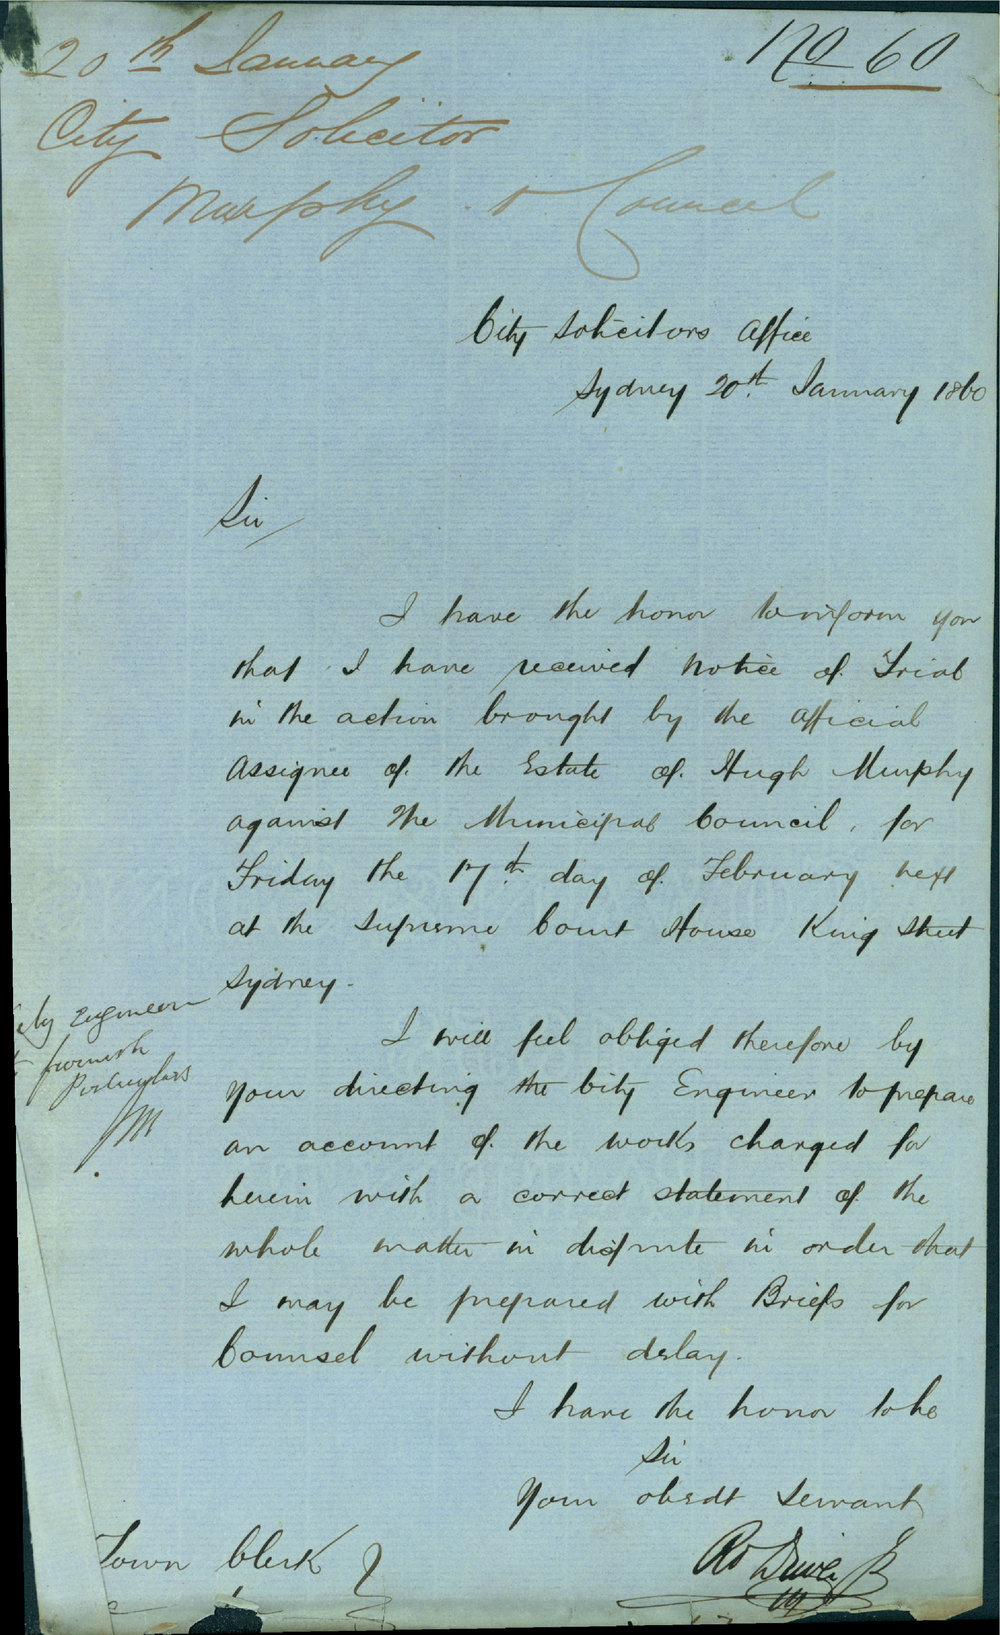 20th January
No 60
City Solicitor
Murphy v Council
City Solicitors Office
Sydney 20th January 1860
Sir
I have the honor to inform you
that I have received notice of Trial
in the action brought by the official
Assignee of the Estate of Hugh Murphy
against the Municipal Council, for
Friday the 17th day of February next
at the Supreme Court House King Street
Sydney.
I will feel obliged therefore by
your directing the City Engineer to prepare
an account of the works charged for
herein with a correct statement of the
whole matter in dispute in order that
I may be prepared with Briefs for
Counsel without delay.
I have the honor to be
Sir
Your obedt Servant
City Engineer
to furnish
Particulars
Town Clerk